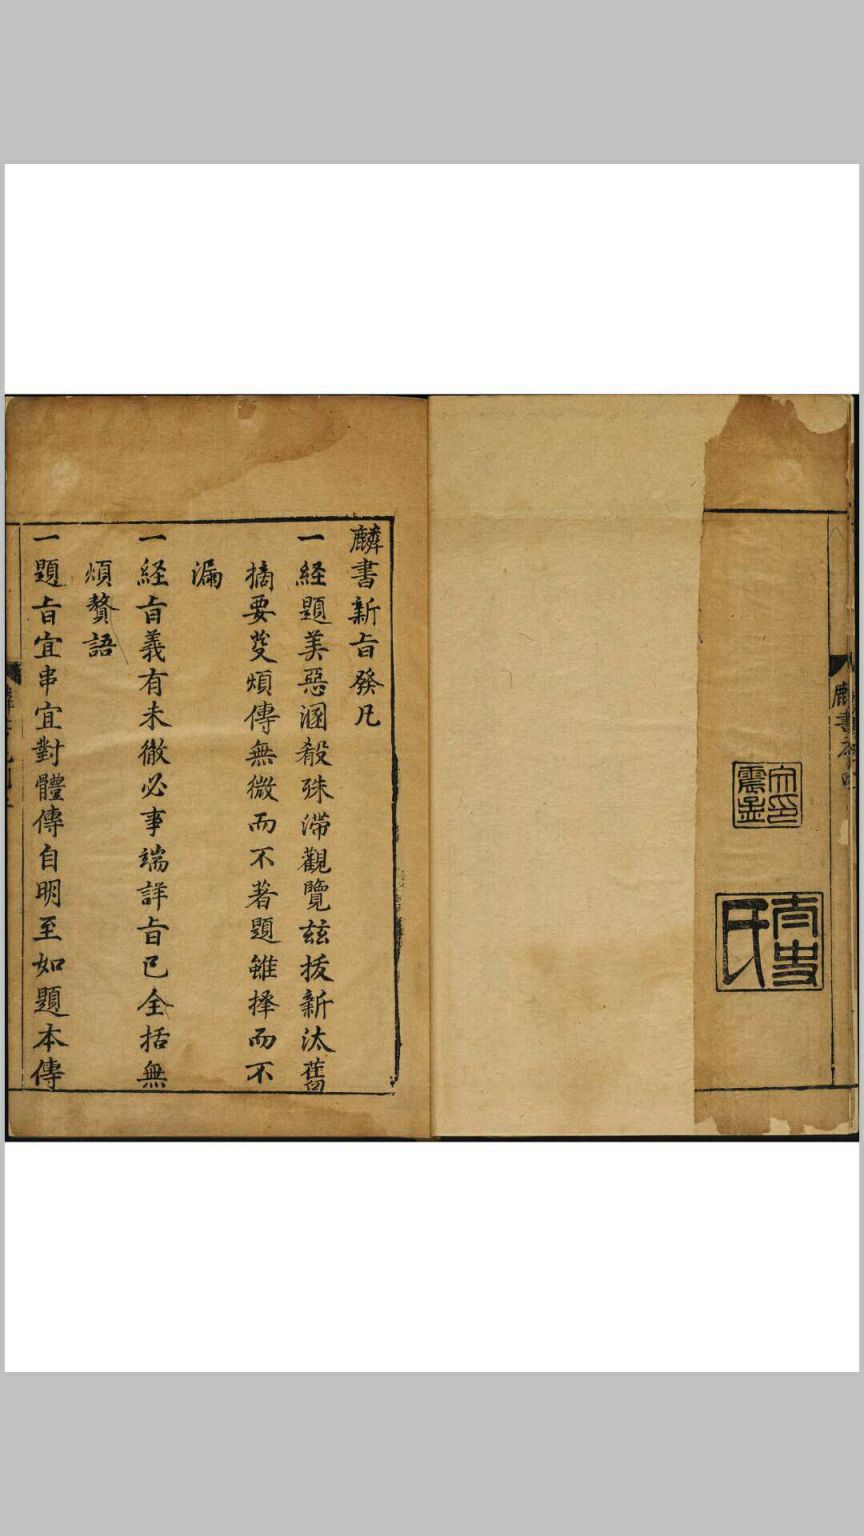 麟書
文印震孟
太史氏
麟書新㫖發凡
一経題美惡溷殽殊滯觀覽茲拔新汰舊
摘要芟煩傳無微而不著題雖擇而不
漏
一経㫖義有未徹必事端詳㫖已全括無
煩贅語
一題㫖宜串宜對體傳自明至如題本傳